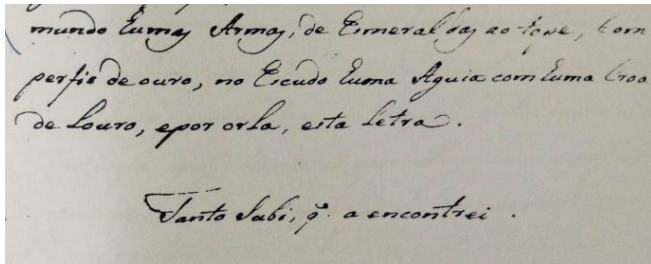 mundo humas Armas, de Esmeraldas ao tope, com
perfis de ouro, no Escudo huma Aguia com huma Croa
de Louro, e por orla, esta letra.
Tanto Subi, q. a encontrei.